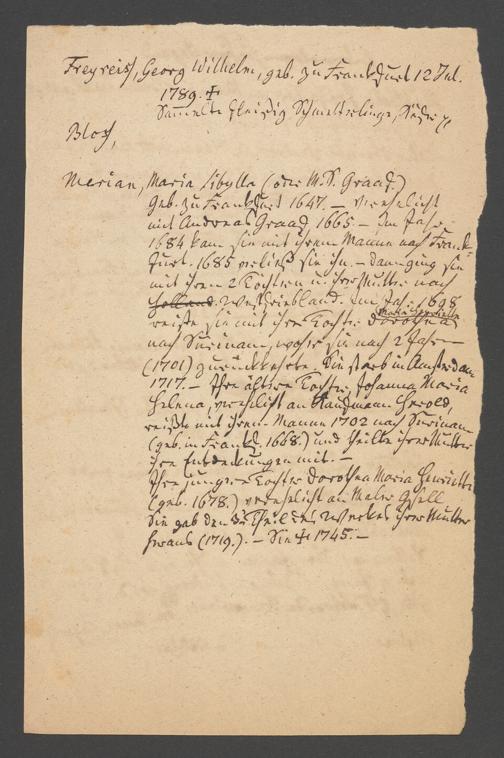 Freyreiß, Georg Wilhelm, geb. zu Frankfurt 12 Jul.
1789. ✝
Sammelte fleißig Schmetterlinge, Käfer
Bloß,
Merian, Maria Sibylla (oder M. S. Graaf.)
Geb. zu Frankfurt 1647. – verehelicht
mit Andreas Graaf 1665. – Im Jahr
1684 kam sie mit ihrem Manne nach Frank-
furt. 1685 verließ sie ihn. – dann ging sie
mit ihren 2 Töchtern u. ihrer Mutter nach
Holland. Westfriesland. Im Jahr 1698
Maria Henriette
reiste sie mit ihrer Tochter Dorothea
nach Surinam, woher sie nach 2 Jahren
(1701) zurückkehrte. Sie starb in Amsterdam
1717. – Ihre ältere Tochter, Johanna Maria
Helena, verehelicht an Kaufmann Herold,
reiste mit ihrem Manne 1702 nach Surinam
(geb. in Frankf. 1668.) und theilte ihrer Mutter
ihre Entdeckungen mit. –
Ihre jüngere Tochter Dorothea Maria Henriette
(geb. 1678.) verehelicht an Maler Gsell
Sie gab den 3n Theil des Werkes ihrer Mutter
heraus (1719.). – Sie ✝ 1745. –